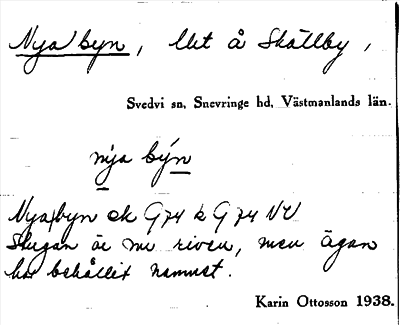 Nya byn, litt å Skällby,
Svedvi sn, Snevringe hd, Västmanlands län.
nya býn
Nya byn ek G74 k G74 NV
Stugan är nu riven, men ägan
har behållit namnet.
Karin Ottosson 1938.